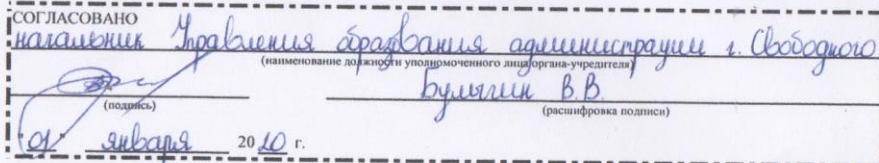 СОГЛАСОВАНО
начальник Управления образования администрации г. Свободного
(наименование должности уполномоченного лица органа-учредителя)
Булыгин В.В.
(подпись) (расшифровка подписи)
" 01 " января 20 20 г.